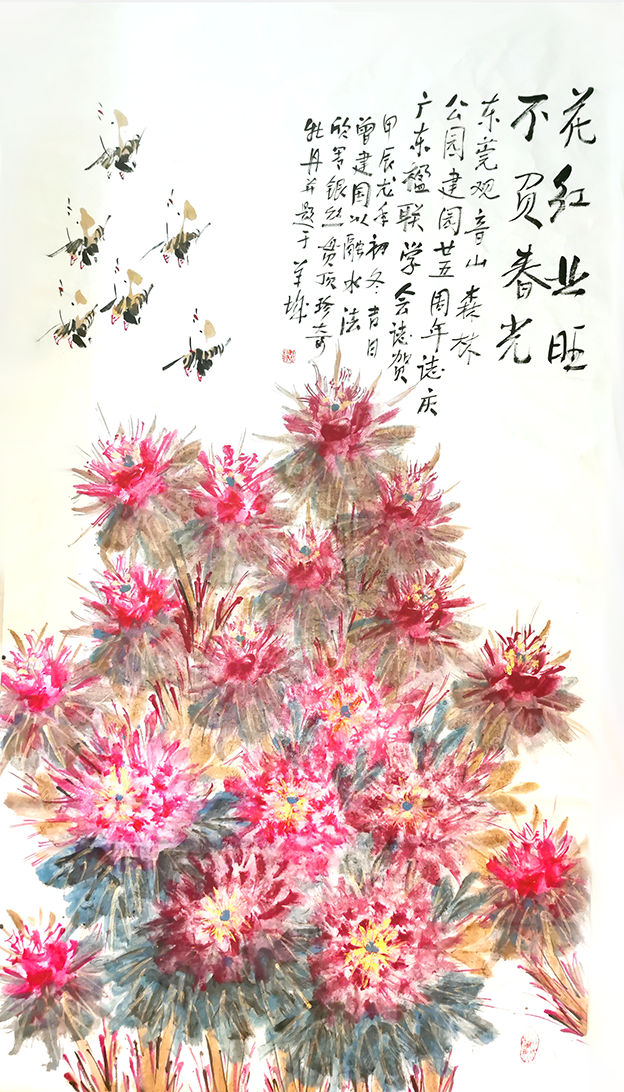 花红业旺
不负春光
东莞观音山森林
公园建园廿五周年誌庆
广东楹联学会誌贺
甲辰龙年初冬吉日
曾建国以融水法
欣写银丝贯顶珍奇
牡丹并题于羊城